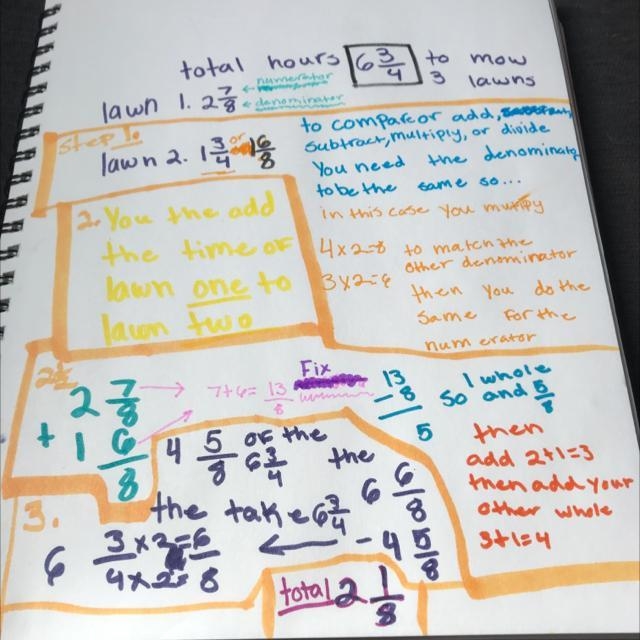 total hours 6 3/4 to mow
3 lawns
lawn 1. 2 7/8 ← numerator
← denominator
Step 1.
lawn 2. 1 3/4 or 1 6/8
to compare or add,
subtract, multiply, or divide
You need the denominator
to be the same so...
in this case you mutipy
4x2=8 to match the
other denominator
3x2=6 then you do the
same for the
numerator
2. You the add
the time of
lawn one to
lawn two
2 1/2
2 7/8
+ 1 6/8
7+6= 13/8
Fix
13
- 8
5
1 whole
so and 5/8
then
add 2+1=3
then add your
other whole
3+1=4
4 5/8 of the
6 3/4
3.
the take 6 3/4
the
6 6/8
- 4 5/8
6 3x2=6
4x2=8
total 2 1/8